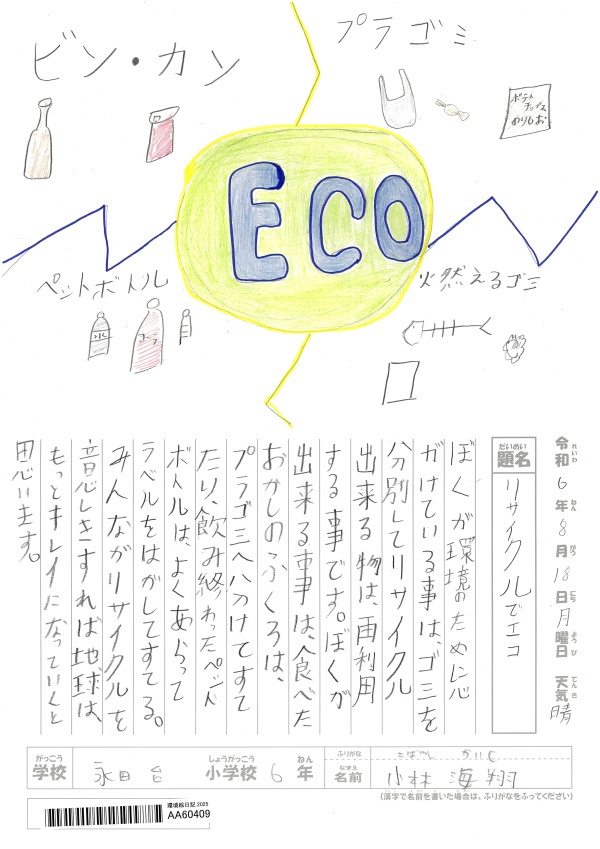 ビン・カン
プラゴミ
ポテト
チップス
のりしお
ECO
ペットボトル
火然えるゴミ
水
コーラ
令和6年8月18日月曜日 天気晴
れいわ ねん がつ にち ようび てんき
だいめい
題名 リサイクルでエコ
ぼくが環境のために心
がけている事は、ゴミを
分別してリサイクル
出来る物は、再利用
する事です。ぼくが
出来る事は、食べた
おかしのふくろは、
プラゴミへ分けてすて
たり、飲み終わったペット
ボトルは、よくあらって
ラベルをはがしてすてる。
みんながリサイクルを
意しきすれば地球は、
もっとキレイになっていくと
思います。
がっこう しょうがっこう ねん ふりがな こばやし かいと
学校 永田台 小学校 6年 なまえ 名前 小林海翔
(漢字で名前を書いた場合は、ふりがなをふってください)
環境絵日記 2025
AA60409